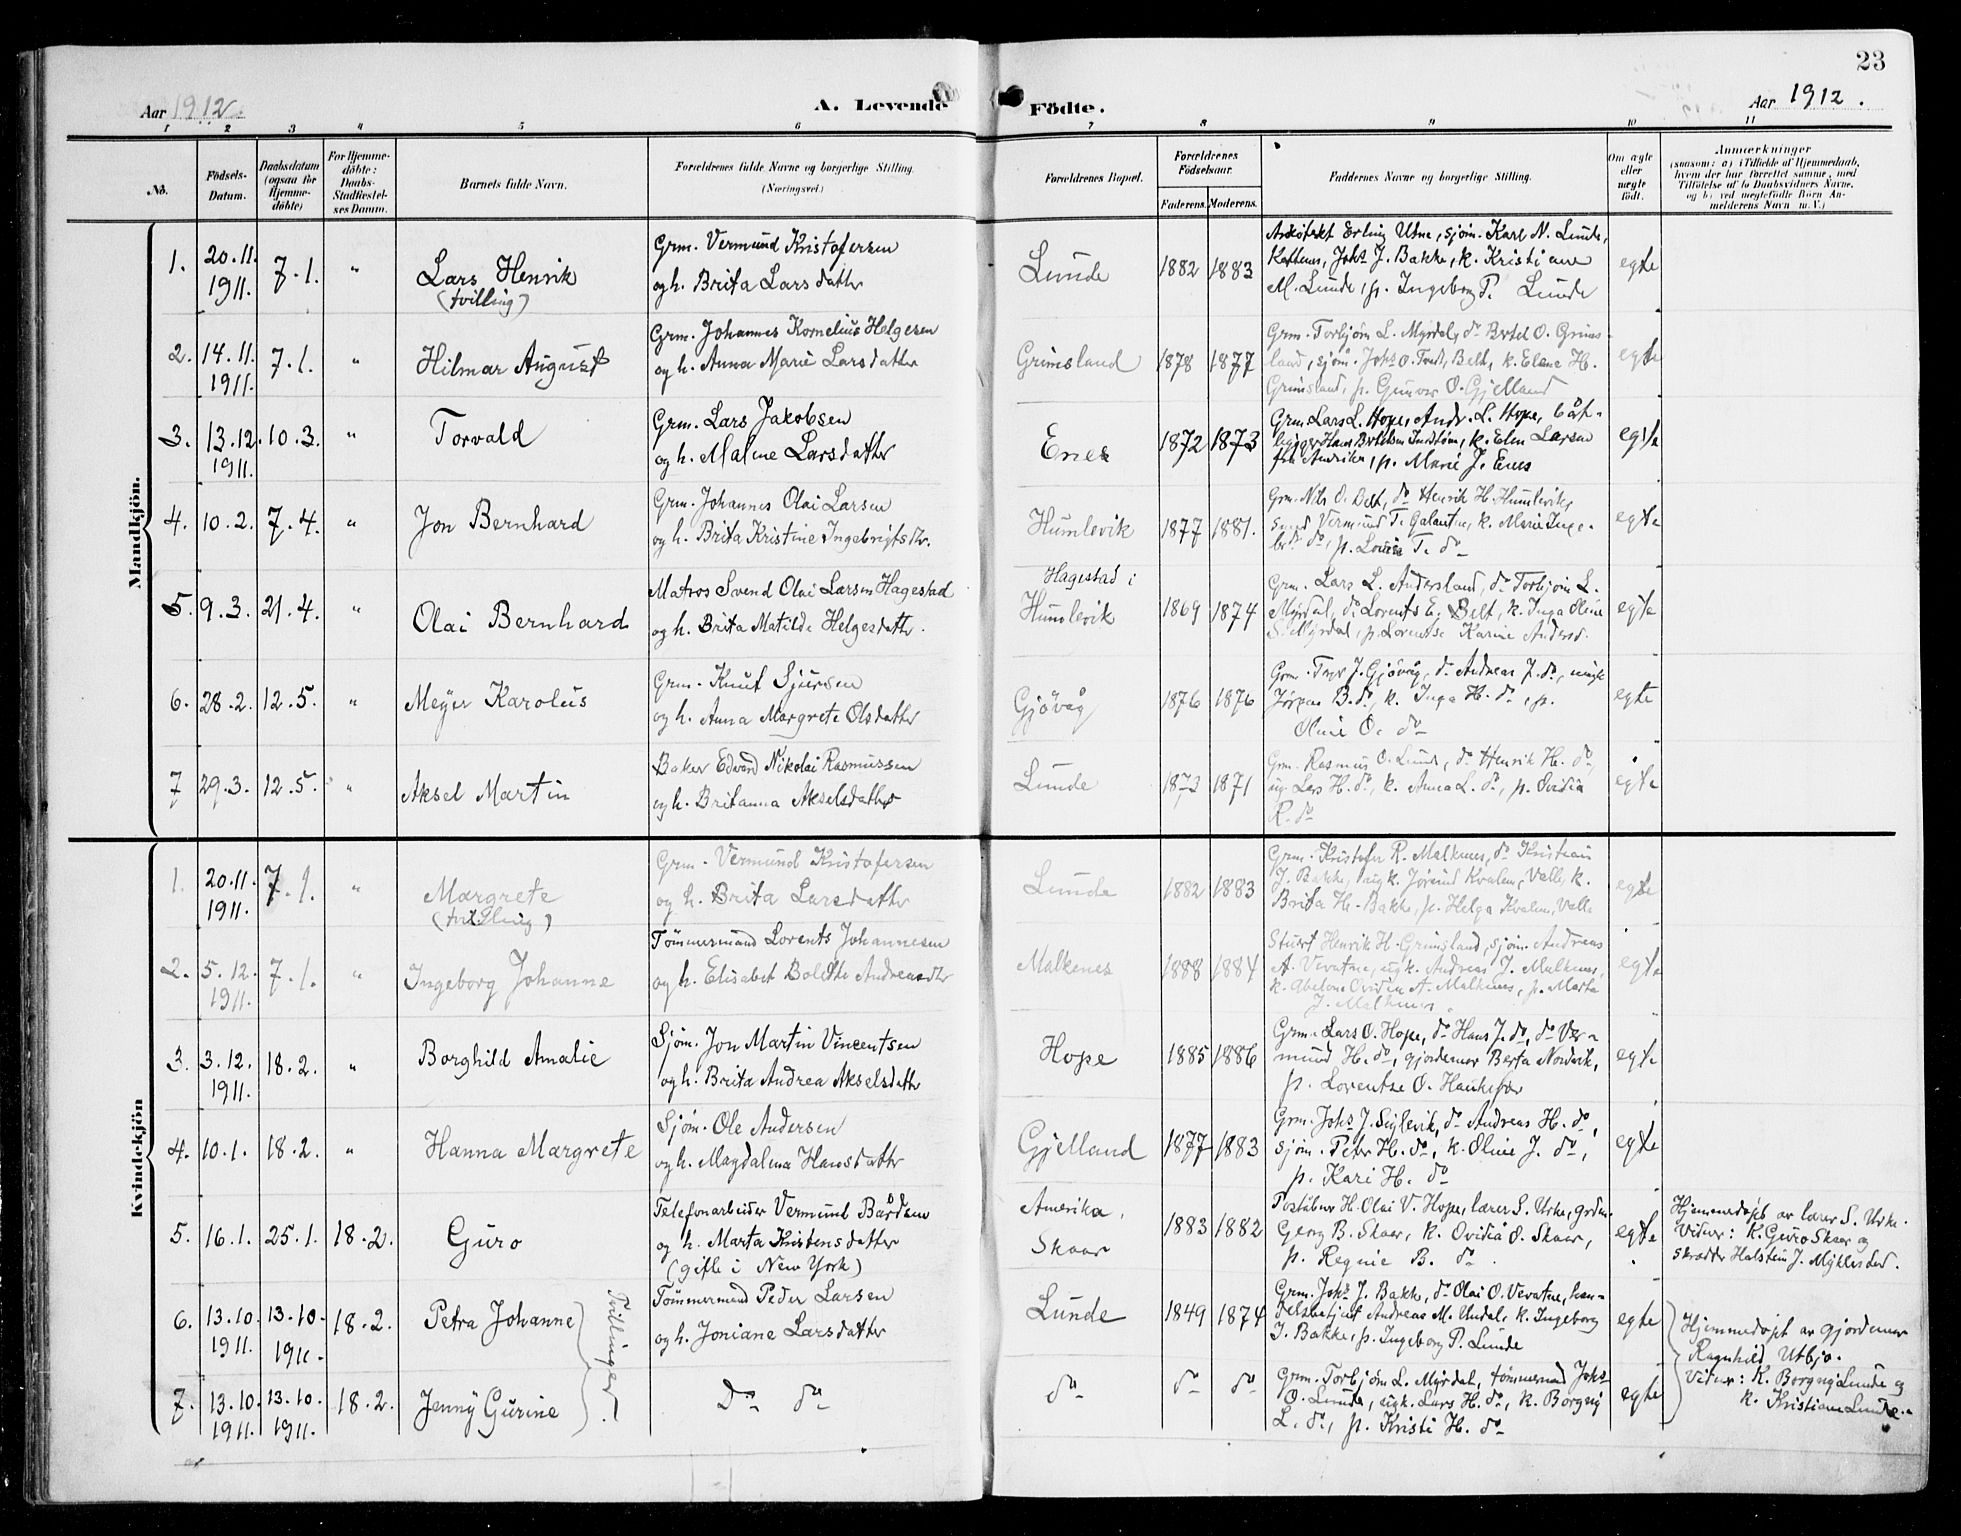 23
Aar 1912.
A. Levende Födte.
Aar 1912.
1 2 3 4 5 6 7 8 9 10 11
No.
Födsels-
Datum.
Daabsdatum
(ogsaa for
Hjemme-
döbte)
For Hjemme-
döbte:
Daabs-
Stadfæstel-
ses Datum.
Barnets fulde Navn.
Forældrenes fulde Navne og borgerlige Stilling.
(Næringsvei.)
Forældrenes Bopæl.
Forældrenes
Födselsaar.
Faderens. Moderens.
Faddernes Navne og borgerlige Stilling.
Om ægte
eller
uægte
födt.
Anmærkninger
(saasom: a) i Tilfælde af Hjemmedaab,
hvem der har forrettet samme, med
Tilföielse af to Daabsvidners Navne,
og b) ved uægtefödte Börn An-
melderens Navn m. V.)
Mandkjön.
1. 20.11. 1911. 7.1. " Lars Henrik
(tvilling)
Grm. Vermund Kristofersen
og h. Brita Larsdatter
Lunde 1882 1883
Arkitekt Erling Utne, sjöm. Karl N. Lunde,
Johs J. Bakke, k. Kristiane
M. Lunde, p. Ingeborg P. Lunde
egte
2. 14.11. 1911. 7.1. " Hilmar August
Grm. Johannes Kornelius Helgesen
og h. Anna Marie Larsdatter
Grimsland 1878 1877
Grm. Torbjörn L. Myrdal, do Bertel O. Grims-
land, sjöm. Johs O. Belt, k. Elene H.
Grimsland, p. Gunvor O. Gjelland
egte
3. 13.12. 1911. 10.3. " Torvald
Grm. Lars Jakobsen
og h. Malene Larsdatter
Enes 1872 1873
Grm. Lars L. Hope, Andr. L. Hope, båt-
bygger Hans Bertelsen k. Elen Larsen
fra Amerika, p. Marie J. Enes
egte
4. 10.2. 7.4. " Jon Bernhard
Grm. Johannes Olai Larsen
og h. Brita Kristine Ingebrigtsdtr.
Humlevik 1877 1881.
Grm. Nils O. Belt, do Henrik H. Humlevik,
Vermund T. k. Marie Inge-
br. do, p. Lovise T. do
egte
5. 9.3. 21.4. " Olai Bernhard
Matros Svend Olai Larsen Hagestad
og h. Brita Matilde Helgesdatter.
Hagestad i
Humlevik 1869 1874
Grm. Lars L. Andersland, do Torbjörn L.
Myrdal, do Lorents E. Belt, k. Inga Oline
Myrdal, p. Lorentse Karine Andersd.
egte
6. 28.2. 12.5. " Meyer Karolus
Grm. Knut Sjursen
og h. Anna Margrete Olsdatter
Gjövåg 1876 1876
Grm. J. Gjövåg, do Andreas J. do, ungk.
Jörgen B. do, k. Inga H. do, p.
Oline O. do
egte
7 29.3. 12.5. " Aksel Martin
Baker Edvard Nikolai Rasmussen
og h. Britanna Akselsdatter
Lunde 1873 1871
Grm. Rasmus O. Lunde, do Henrik H. do,
ug. Lars H. do, k. Anna L. do, p. Ovidia
R. do
egte
Kvindekjön
1. 20.11. 1911. 7.1. " Margrete
(tvilling)
Grm. Vermund Kristofersen
og h. Brita Larsdatter
Lunde 1882 1883
Grm. Kristofer R. Malkenes, do Kristian
J. Bakke, ungk. Jörund Kvalen, Valle, k.
Brita H. Bakke, p. Helga Kvalen, Valle
egte
2. 5.12. 1911. 7.1. " Ingeborg Johanne
Tömmermand Lorents Johannesen
og h. Elisabet Bolette Andreasdtr
Malkenes 1888 1884
Stuert Henrik H. Grimsland, sjöm. Andreas
A. Vevatne, ugk. Andreas J. Malkenes,
k. Abelone Ovidia A. Malkenes, p. Marta
J. Malkenes.
egte
3. 3.12. 1911. 18.2. " Borghild Amalie
Sjöm. Jon Martin Vincentsen
og h. Brita Andrea Akselsdatter
Hope 1885 1886
Grm. Lars O. Hope, do Hans J. do, do Ver-
mund H. do, gjordemor Berta Nordvik,
p. Lorentse O.
egte
4. 10.1. 18.2. " Hanna Margrete
Sjöm. Ole Andersen
og h. Magdalena Hansdatter
Gjelland 1877 1883
Grm. Johs J. do Andreas H. do,
sjöm. Peter H. do, k. Oline J. do,
p. Kari H. do
egte
5. 16.1. 25.1. 18.2. Guro
Telefonarbeider Vermund Bårdsen
og h. Marta Kristensdatter
(gifte i New York)
Amerika,
Skaar 1883 1882
Poståbner H. Olai V. Hope, lærer S. Urke, grdm.
Georg B. Skaar, k. Ovidia O. Skaar,
p. Regine B. do
egte
Hjemmedöpt av lærer S. Urke.
Vitner: k. Guro Skaar og
skrædder Halstein J. Myklested.
6. 13.10. 1911. 13.10. 1911. 18.2. Petra Johanne
Tvillinger
Tömmermand Peder Larsen
og h. Joniane Larsdatter
Lunde 1849 1874
Grm. Johs J. Bakke, do Olai O. Vevatne, han-
delsbetjent Andreas M. Undal, k. Ingeborg
J. Bakke, p. Ingeborg P. Lunde
egte
Hjemmedöpt av gjordemor
Ragnhild Utbjo.
Vitner: k. Borgny Lunde og
k. Kristiane Lunde.
7. 13.10 1911. 13.10. 1911. 18.2. Jenny Gurine
Do do
do do do
Grm. Torbjörn L. Myrdal, tömmermand Johs
O. Lunde, ugk. Lars H. do, k. Borgny
L. do, p. Kristi H. do
egte